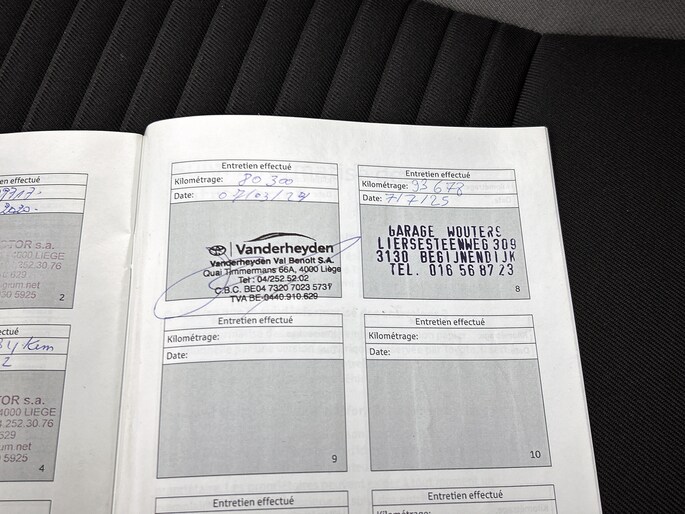 2020.
TOR s.a.
4000 LIEGE
.252.30.76
629
gium.net
0 5925
2
TOR s.a.
4000 LIEGE
4.252.30.76
629
um net
0 5925
4
Entretien effectué
Kilométrage: 80 300
Date:
Vanderheyden
Vanderheyden Val Benoit S.A.
Quai Timmermans 66A, 4000 Liège
Tel : 04/252.52.02
C.B.C. BE04 7320 7023 5731
TVA BE-0440.910.629
Entretien effectué
Kilométrage: 93 678
Date: 7/7/25
GARAGE WOUTERS
LIERSESTEENWEG 309
3130 BEGIJNENDIJK
TEL. 016 56 87 23
8
Entretien effectué
Kilométrage:
Date:
9
Entretien effectué
Kilométrage:
Date:
10
Entretien effectué
Entretien effectué
Kilométrage: